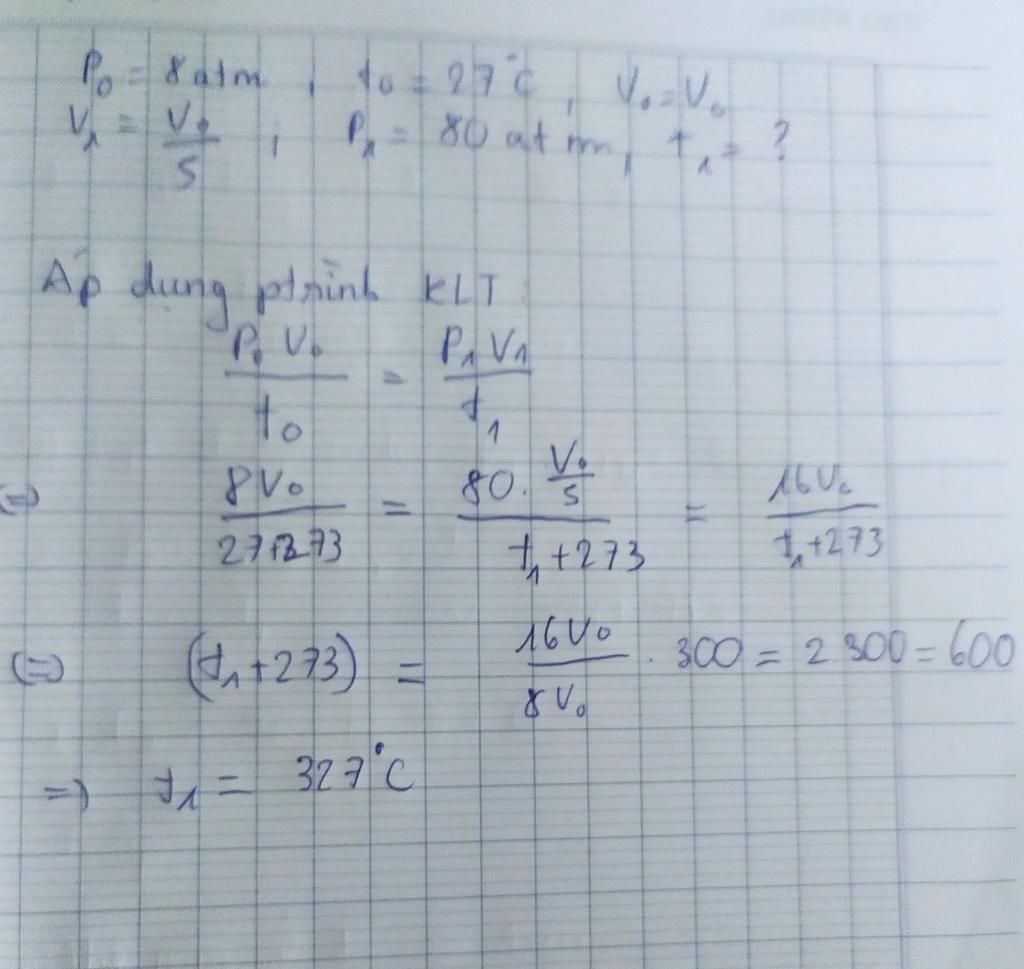 P₀ = 8 atm , t₀ = 27°C , V₀ = V₀
V₁ = V₀/5 , P₁ = 80 atm, t₁ = ?
Áp dụng ptrình KLT
P₀ V₀ / t₀ = P₁ V₁ / t₁
(=) 8V₀ / 27+273 = 80. V₀/5 / t₁ + 273 = 16V₀ / t₁ + 273
(=) (t₁ + 273) = 16V₀ / 8V₀ . 300 = 2.300 = 600
=) t₁ = 327°C